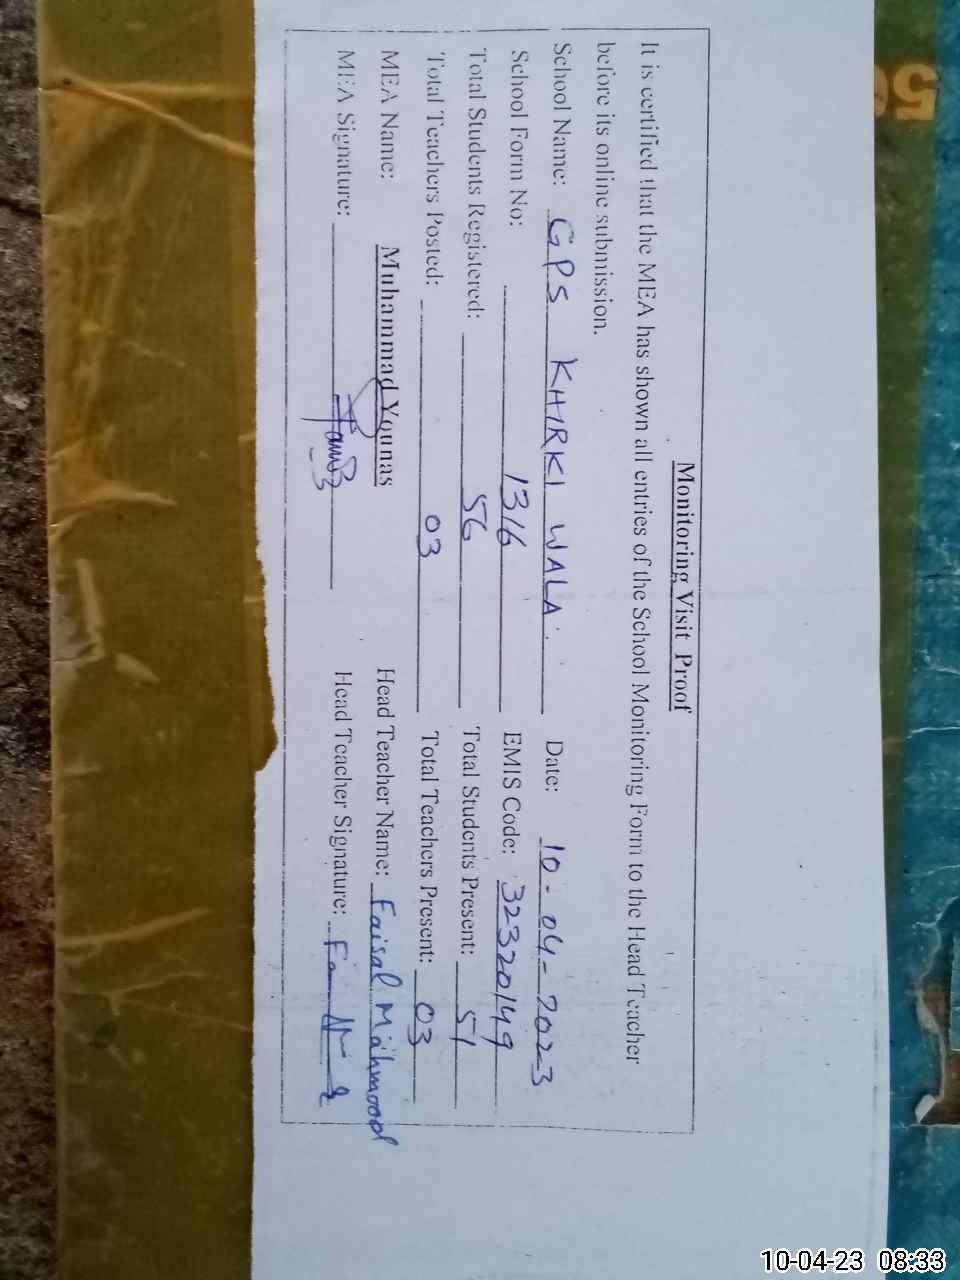 Monitoring Visit Proof
It is certified that the MEA has shown all entries of the School Monitoring Form to the Head Teacher
before its online submission.
School Name: GPS KHIRKI WALA. Date: 10-04-2023
School Form No: 1316 EMIS Code: 32320149
Total Students Registered: 56 Total Students Present: 51
Total Teachers Posted: 03 Total Teachers Present: 03
MEA Name: Muhammad Younas Head Teacher Name: Faisal Mahmood
MEA Signature: Head Teacher Signature:
50
10-04-23 08:33